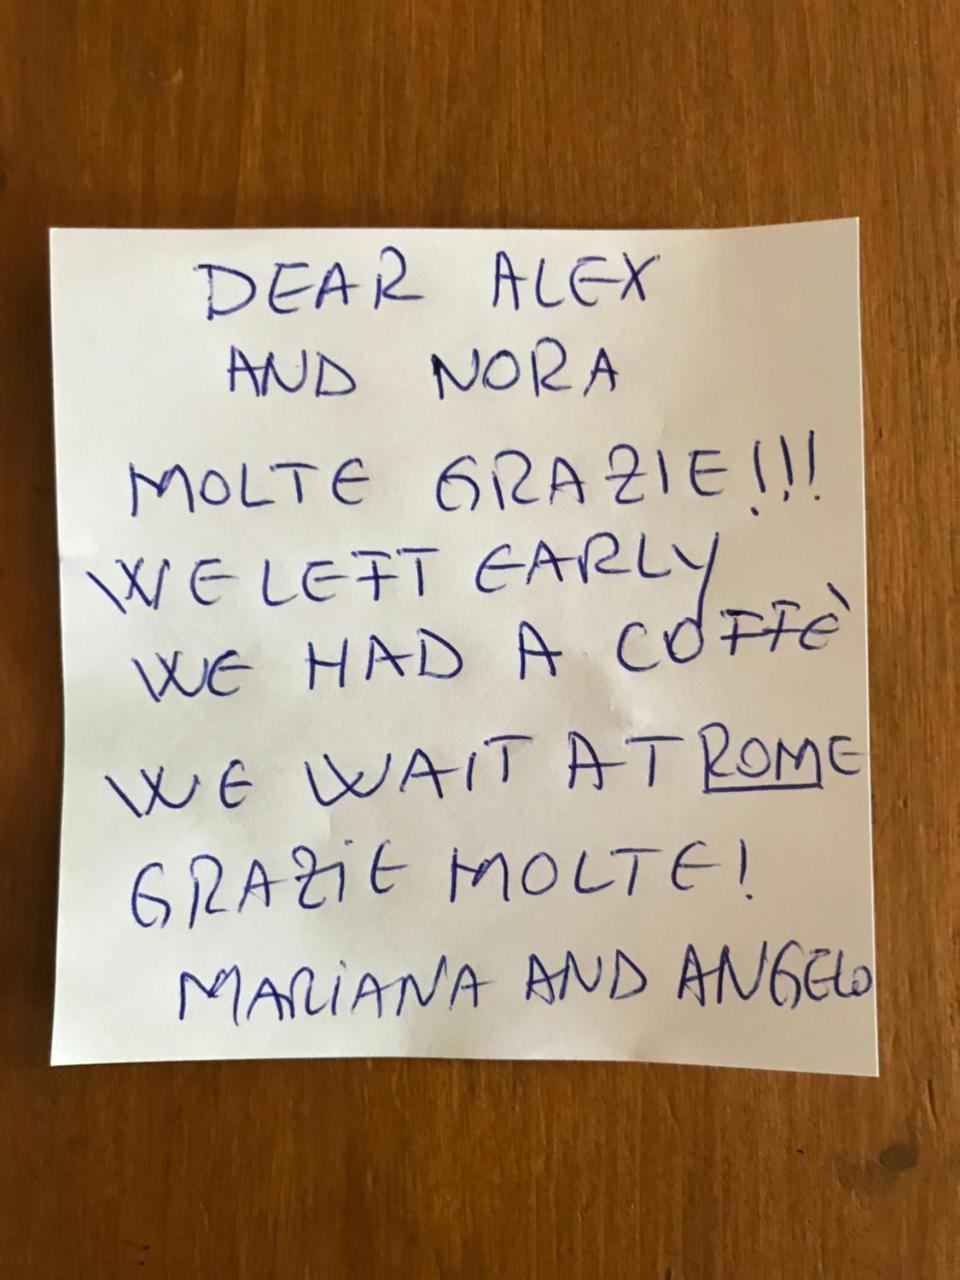 DEAR ALEX
AND NORA
MOLTE GRAZIE!!!
WE LEFT EARLY
WE HAD A COFFÈ
WE WAIT AT ROME
GRAZIE MOLTE!
MARIANA AND ANGELO